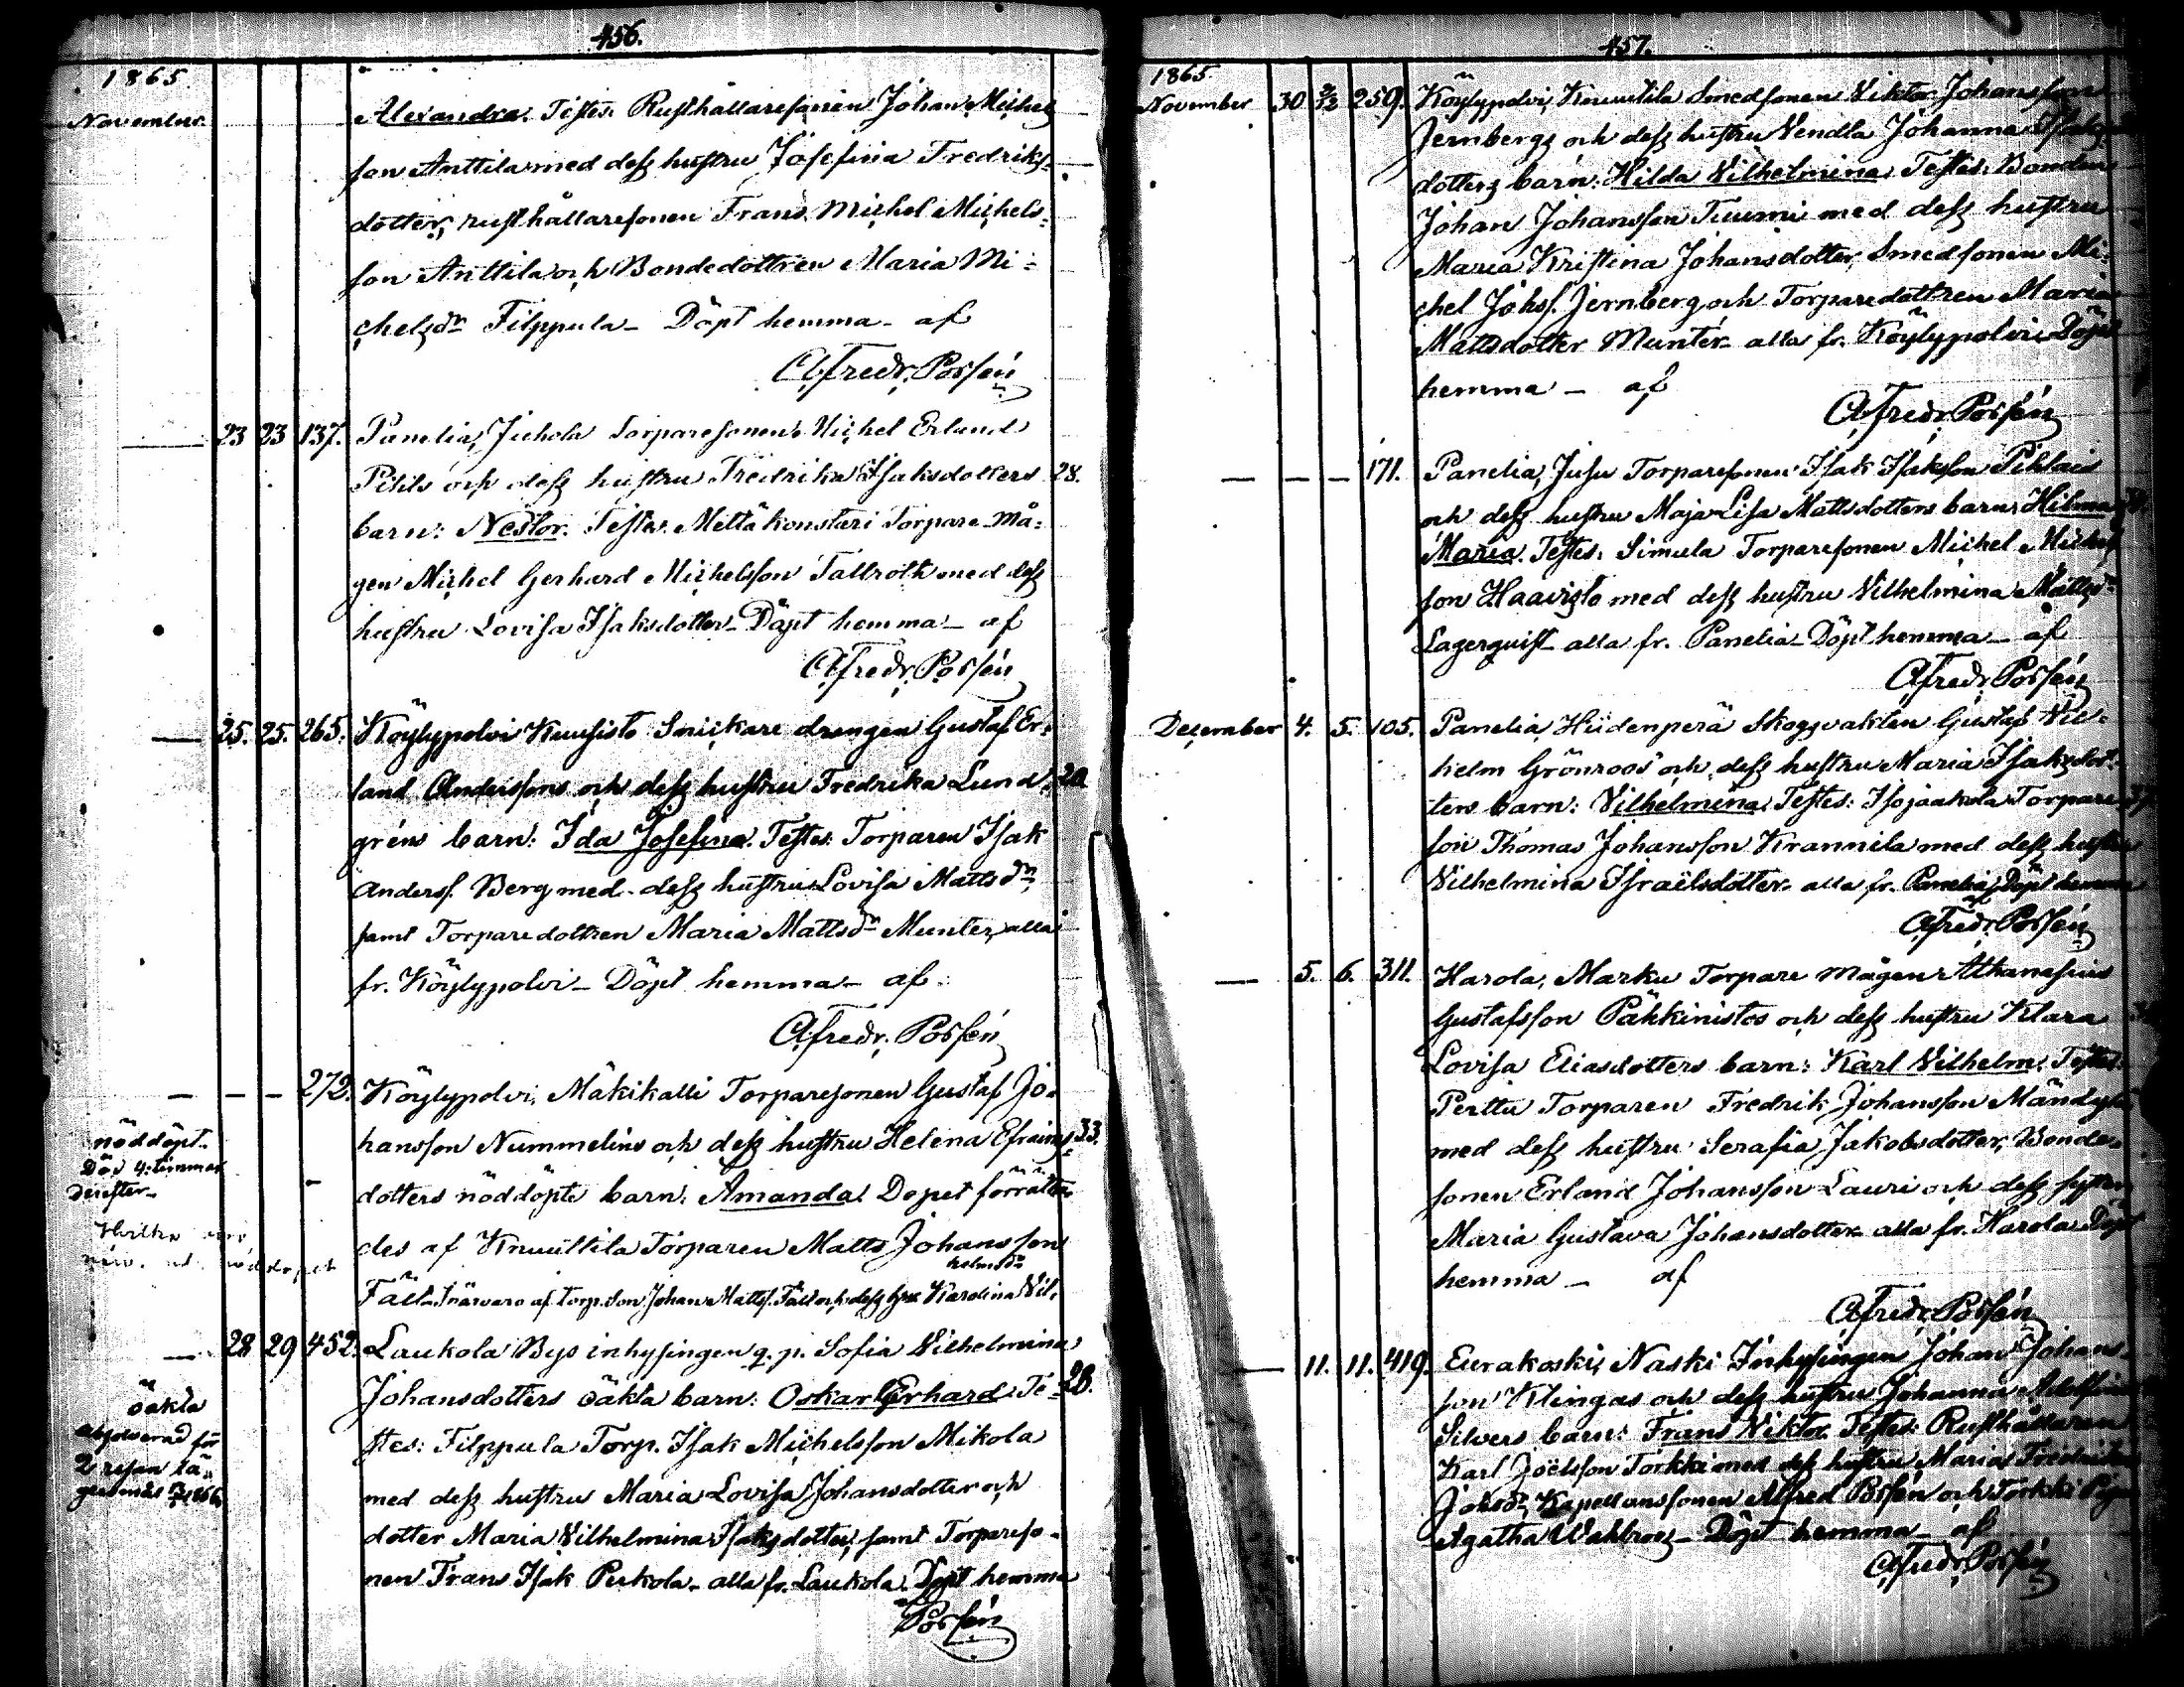 456.
1865
November
Alexandra. Testes: Rusthållaresonen Johan Michel
son Anttila med dess hustru Josefina Fredriks-
dotter, rusthållaresonen Frans Michel Michels-
son Anttila och Bondedottren Maria Mi-
chelsdr Filppula - Döpt hemma - af
A Fredr. Possén
— 23 23 137. Panelia, Juhola Torparesonen Michel Erland
Pihls och dess hustru Fredrika Isaksdotters 28.
barn: Nestor. Testes: Mettäkonstari Torpare må-
gen Michel Gerhard Michelsson Tallroth med dess
hustru Lovisa Isaksdotter - Döpt hemma - af
A Fredr. Possén
— 25. 25. 265. Köylypolvi Kuusisto Snickare drengen Gustaf Er-
land Anderssons och dess hustru Fredrika Lund-
gréns barn: Ida Josefina. Testes: Torparen Isak
Anderss. Berg med dess hustru Lovisa Mattsdr,
samt Torparedottren Maria Mattsdr Munter, alla
fr. Köylypolvi - Döpt hemma - af
A Fredr. Possén
— — — 272. Köylypolvi, Mäkikalli Torparesonen Gustaf Jo-
hansson Nummelins och dess hustru Helena Efraims- 33.
dotters nöddöpte barn: Amanda. Dopet förrätta-
des af Knuuttila Torparen Matts Johansson
helmsdr
Fält närvaro af Torp. Son. Johan Matts. Fält och dess hru Karolina Vil-
nöddöpt.
Död 4 timmar
derefter.
— 28 29 452. Laukola Bys inhysingen q. p. Sofia Vilhelmina
Johansdotters oäkta barn: Oskar Gerhard. Te- 28.
stes: Filppula Torp. Isak Michelsson Mikola
med dess hustru Maria Lovisa Johansdotter och
dotter Maria Vilhelmina Isaksdotter, samt Torpareso-
nen Frans Isak Perkola - alla fr. Laukola. Döpt hemma
Possén
oäkta
absolverad för
2 resan lä-
gersmål
457.
1865
November 30 3/12 259. Köylypolvi, Knuutila Smedsonen Viktor Johansson
Jernbergs och dess hustru Vendla Johanna Isaks-
dotters barn: Hilda Vilhelmina. Testes: Bonden
Johan Johansson Tuumi med dess hustru
Maria Kristina Johansdotter, Smedsonen Mi-
chel Johss. Jernberg och Torparedottren Maria
Mattsdotter Munter - alla fr. Köylypolvi. Döpt
hemma - af
A Fredr. Possén
— — — 171. Panelia, Jusu Torparesonen Isak Isaksson Pihlais
och dess hustru Maja Lisa Mattsdotters barn: Hilma
Maria. Testes: Simula Torparesonen Michel Michels
son Haavisto med dess hustru Vilhelmina Mattsdr
Lagerquist - alla fr. Panelia - Döpt hemma - af
A Fredr. Possén
December 4. 5. 105. Panelia, Hiidenperä Skogsvakten Gustaf Vil-
helm Grönroos och dess hustru Maria Isaksdot-
ters barn: Vilhelmina. Testes: Isojaakola Torpare
son Thomas Johansson Krannila med dess hustru
Vilhelmina Israelsdotter - alla fr. Panelia, Döpt hemma
af
A Fredr. Possén
— 5. 6. 311. Harola, Marku Torpare mågen Athanasius
Gustafsson Päkkinistos och dess hustru Klara
Lovisa Eliasdotters barn: Karl Vilhelm. Testes:
Perttu Torparen Fredrik Johansson Mändylä
med dess hustru Serafia Jakobsdotter, Bonde-
sonen Erland Johansson Lauri och dess syster
Maria Gustava Johansdotter - alla fr. Harola. Döpt
hemma - af
A Fredr. Possén
— 11. 11. 419. Eurakoski, Naski Inhysingen Johan Johans-
son Klingas och dess hustru Johanna Adolfina
Silvers barn: Frans Viktor. Testes: Rusthållaren
Karl Joelsson Torkki med dess hustru Maria Fredrika
Johsdr, Kapellanssonen Alfred Possén och Torkki Pigan
Agatha Wahlroos - Döpt hemma - af
A Fredr. Possén